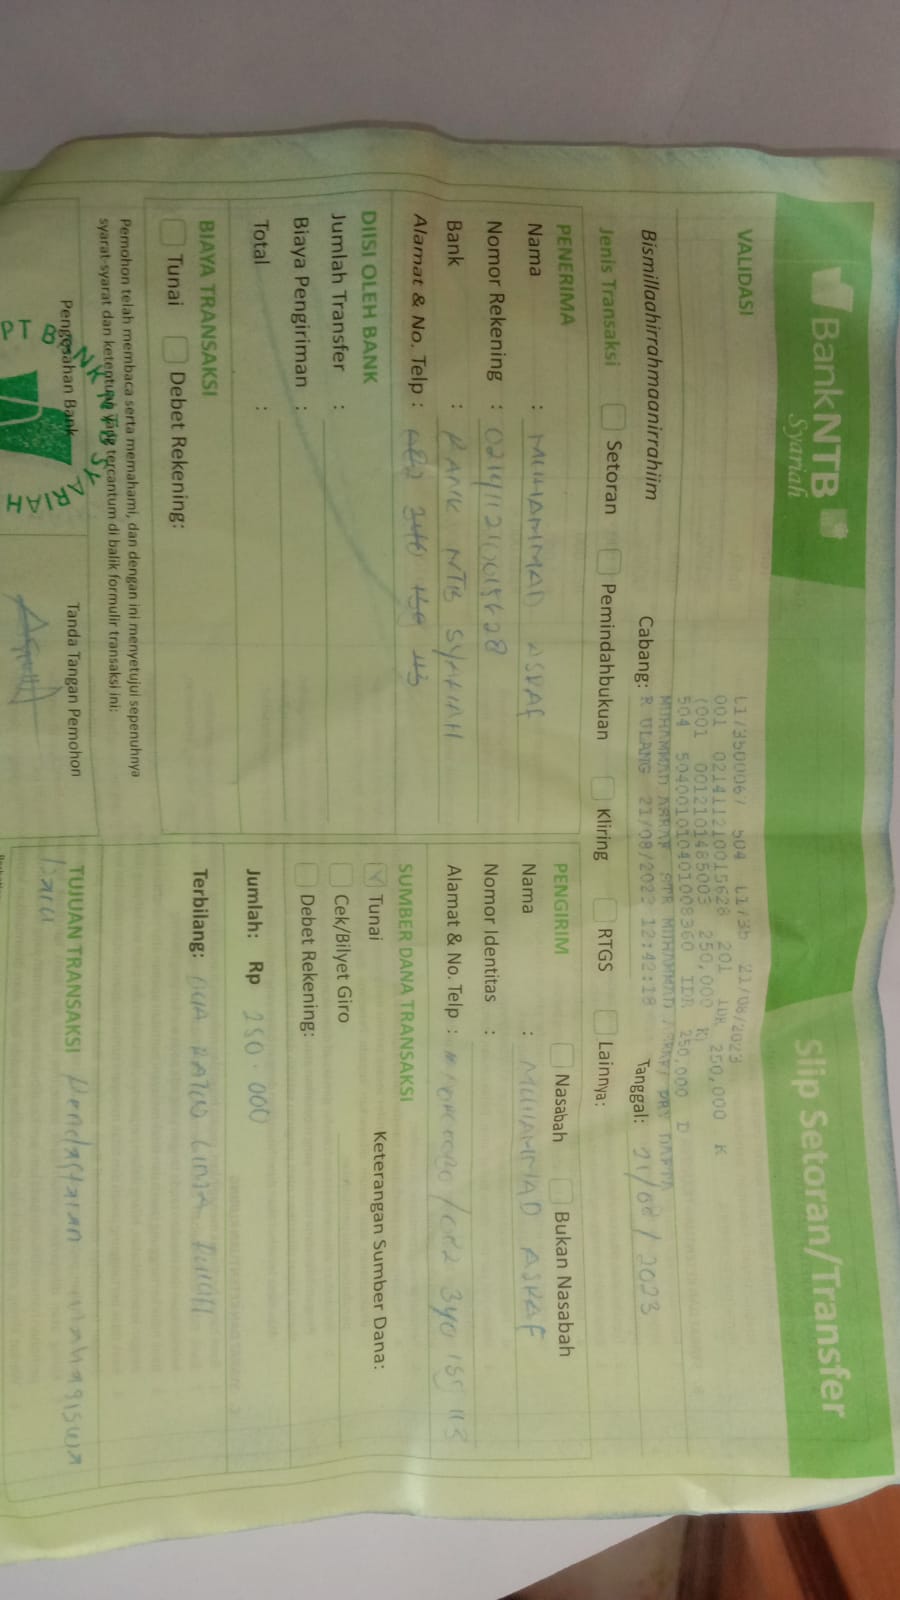 BankNTB
Syariah
Slip Setoran/Transfer
VALIDASI
L1/3b00067 504 L1/3b 21/08/2023
001 0214112100015628 201 IDR 250,000 K
(001 0012101485003 250,000 K)
504 504001010401008360 IDR 250,000 D
MUHAMMAD STR MUHAMMAD
ULANG 21/08/2023 12:42:18
Bismillaahirrahmaanirrahiim
Cabang:
Tanggal: 21/08/2023
Jenis Transaksi Setoran Pemindahbukuan Kliring RTGS Lainnya:
PENERIMA
Nama : MUHAMMAD ASRAF
Nomor Rekening : 0214112100015628
Bank : BANK NTB SYARIAH
Alamat & No. Telp :
PENGIRIM Nasabah Bukan Nasabah
Nama : MUHAMMAD ASRAF
Nomor Identitas :
Alamat & No. Telp :
DIISI OLEH BANK
Jumlah Transfer :
Biaya Pengiriman :
Total :
SUMBER DANA TRANSAKSI
Tunai Keterangan Sumber Dana:
Cek/Bilyet Giro
Debet Rekening:
BIAYA TRANSAKSI
Tunai Debet Rekening:
Jumlah: Rp 250.000
Terbilang: DUA RATUS LIMA PULUH
Pemohon telah membaca serta memahami, dan dengan ini menyetujui sepenuhnya
syarat-syarat dan ketentuan yang tercantum di balik formulir transaksi ini:
Pengesahan Bank
Tanda Tangan Pemohon
TUJUAN TRANSAKSI Pendaftaran Mahasiswa
baru